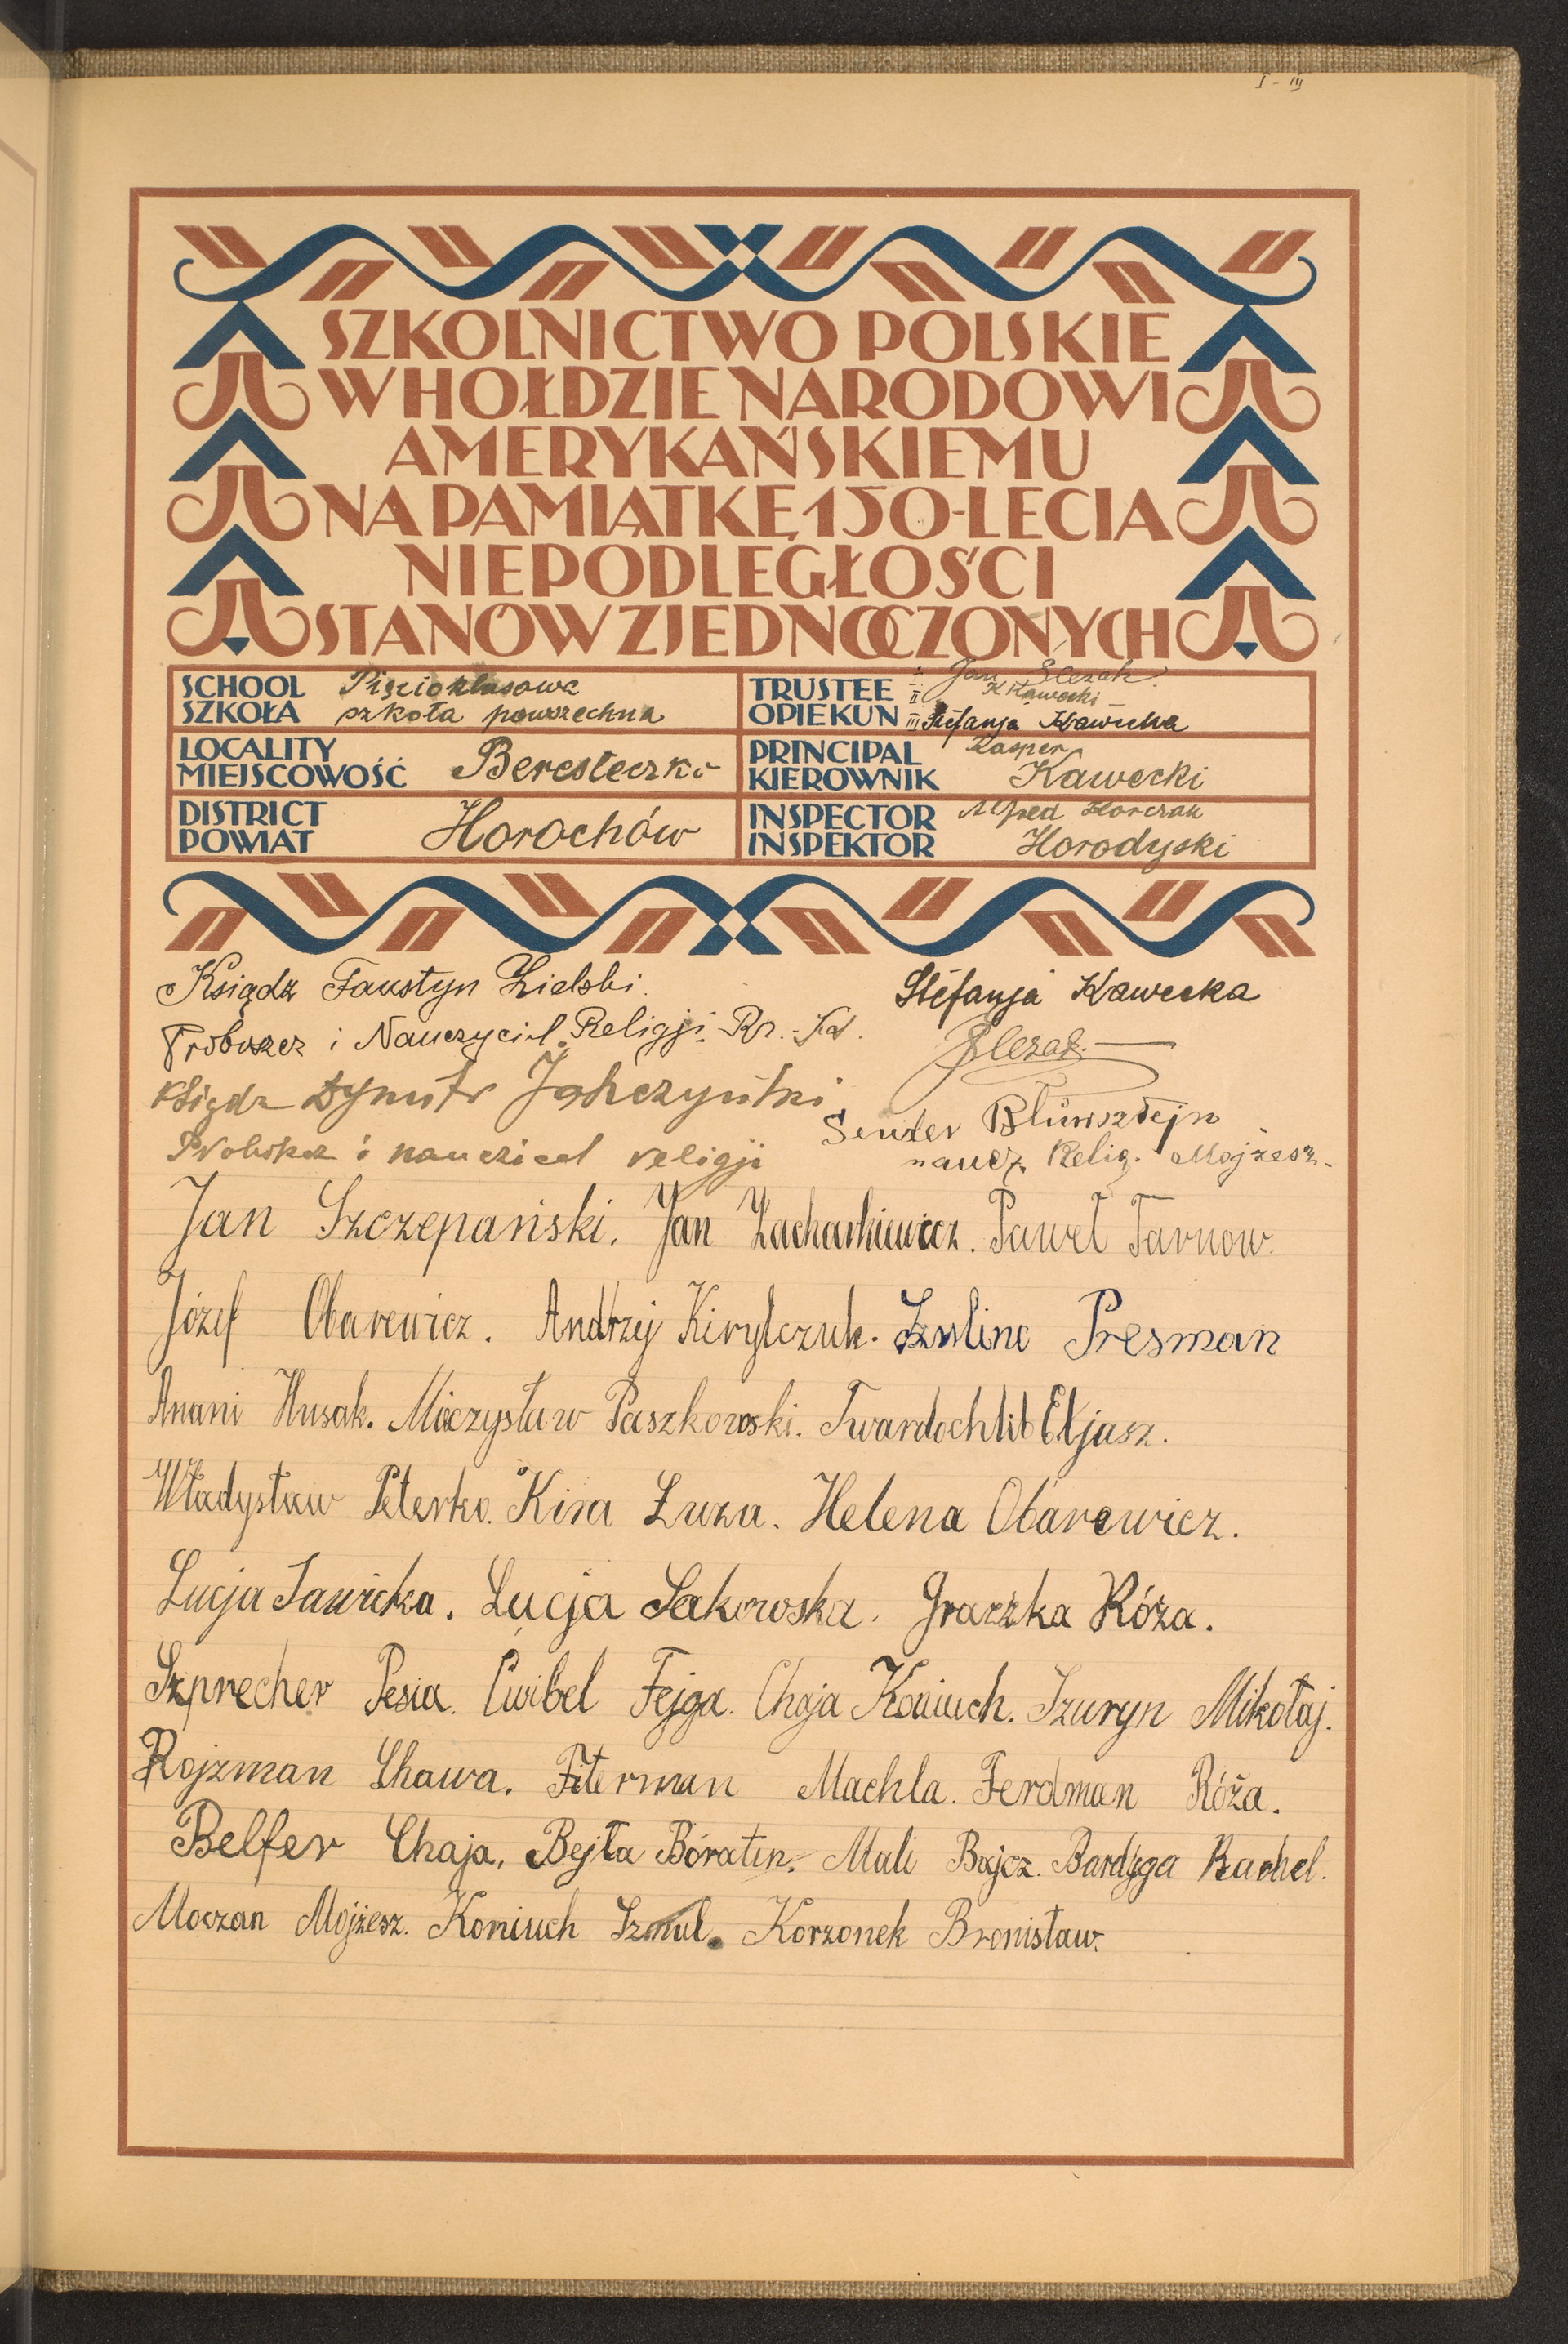 I - III
SZKOLNICTWO POLSKIE
W HOŁDZIE NARODOWI
AMERYKAŃSKIEMU
NA PAMIĄTKĘ 150-LECIA
NIEPODLEGŁOŚCI
STANÓW ZJEDNOCZONYCH
SCHOOL
SZKOŁA
Pięcioklasowa
szkoła powszechna
TRUSTEE
OPIEKUN
I. Jan Ślezak.
II K Kawecki -
III Stefanja Kawecka
LOCALITY
MIEJSCOWOŚĆ
Beresteczko
PRINCIPAL
KIEROWNIK
Kasper
Kawecki
DISTRICT
POWIAT
Horochów
INSPECTOR
INSPEKTOR
Alfred Horczak
Horodyski
Ksiądz Faustyn Zielski.
Proboszcz i Nauczyciel Religji Rz.-Kat.
Stefanja Kawecka
Ślezak.
Ksiądz Dymitr
Proboszcz i nauczieel religji
Sender Bluwsztejn
naucz. Relig. Mojżesz.
Jan Szczepański. Jan Zacharkiewicz. Paweł Tarnow.
Józef Obarewicz. Andrzej Kirylczuk. Presman
Anani Husak. Mieczysław Paszkowski. Twardochlib Eljasz.
Władysław Peterko. Kisa Luza. Helena Obarewicz.
Lucja Sawicka. Lucja Sakowska. Graczka Róża.
Szprecher Pesia. Cwibel Fejga. Chaja Koniuch. Szuryn Mikołaj.
Rojzman Chawa. Fiterman Machla. Ferdman Róża.
Belfer Chaja. Bejła Boratin. Mali Bojcz. Bardyga Rachel.
Moczan Mojżesz. Koniuch Szmul. Korzonek Bronisław.